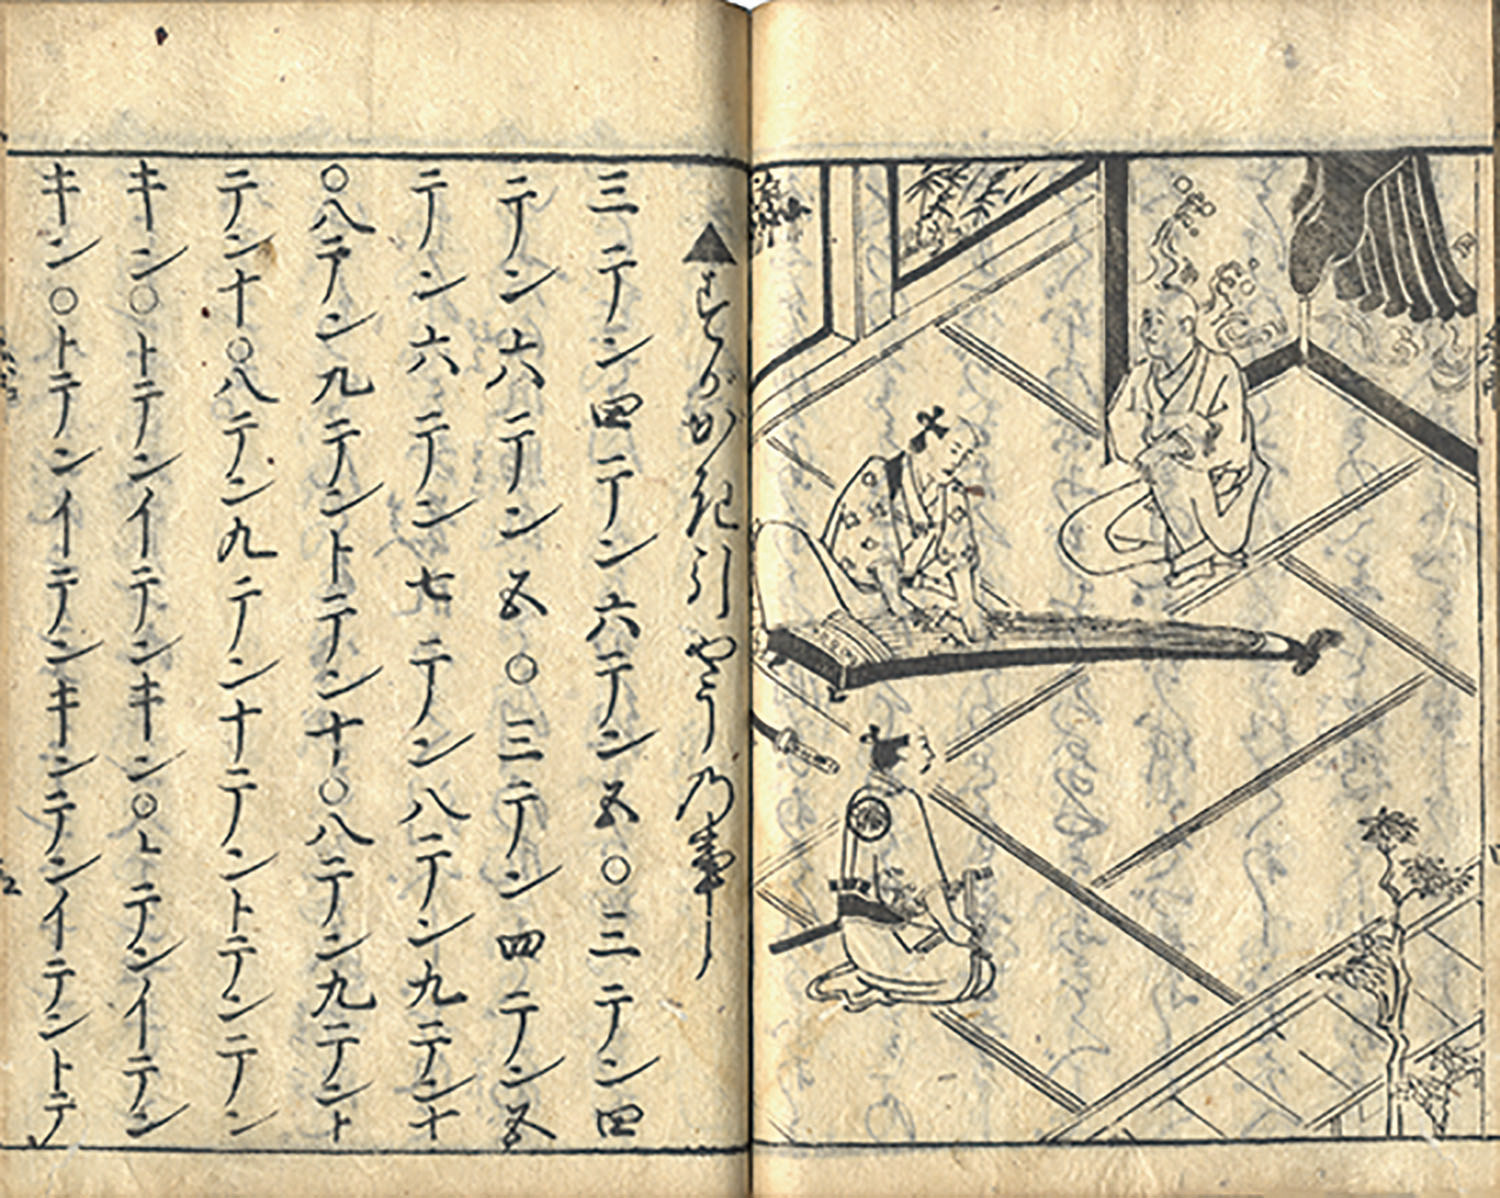 ▲すがかき引やう乃事
三テン四テン六テン五○三テン四
テン六テン五○三テン四テン五
テン六テン七テン八テン九テン十
○八テン九テントテン十○八テン九テント
テン十○八テン九テン十テントテンテン
キン○トテンイテンキン○トテンイテン
キン○トテンイテンキンテンイテントテ